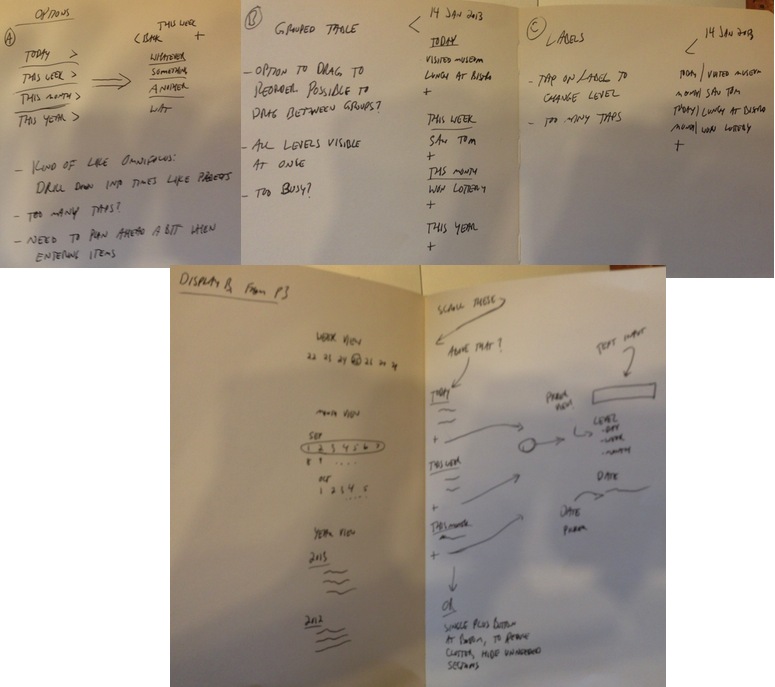 OPTIONS
A
THIS WEEK
< BACK +
TODAY >
THIS WEEK >
THIS MONTH >
THIS YEAR >
WHATEVER
SOMETHING
ANOTHER
WAT
- KIND OF LIKE OMNIFOCUS:
DRILL DOWN INTO TIMES LIKE PROJECTS
- TOO MANY TAPS?
- NEED TO PLAN AHEAD A BIT WHEN
ENTERING ITEMS
B
GROUPED TABLE
- OPTION TO DRAG TO
REORDER POSSIBLE TO
DRAG BETWEEN GROUPS?
- ALL LEVELS VISIBLE
AT ONCE
- TOO BUSY?
< 14 JAN 2013
TODAY
VISITED MUSEUM
LUNCH AT BISTRO
+
THIS WEEK
SAW TOM
+
THIS MONTH
WON LOTTERY
+
THIS YEAR
+
C
LABELS
- TAP ON LABEL TO
CHANGE LEVEL
- TOO MANY TAPS
< 14 JAN 2013
TODAY/ VISITED MUSEUM
MONTH/ SAW TOM
TODAY/ LUNCH AT BISTRO
MONTH/ WON LOTTERY
+
DISPLAY B FROM P3
WEEK VIEW
22 23 24
MONTH VIEW
SEP
1 2 3 4 5 6 7
8 9 ....
OCT
1 2 3 4 5
.....
YEAR VIEW
2013
2012
SCROLL THESE
ABOVE THAT?
TODAY
+
THIS WEEK
+
THIS MONTH
+
OR
SINGLE PLUS BUTTON
AT BOTTOM, TO REDUCE
CLUTTER, HIDE UNNEEDED
SECTIONS
TEXT INPUT
VIEW
LEVEL
- DAY
- WEEK
- MONTH
DATE
DATE
PICKER